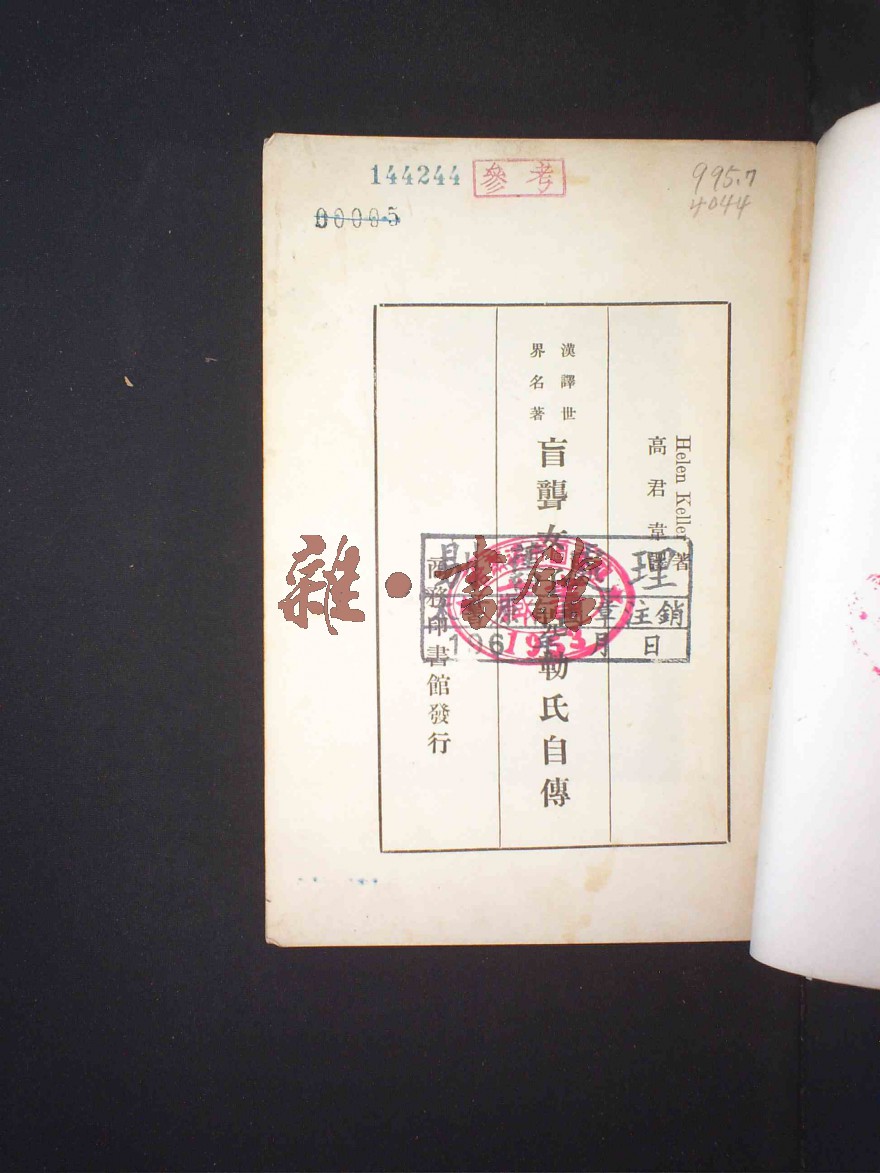 144244
參考
00005
995.7
4044
Helen Keller 著
高君韋
漢譯世
界名著
盲聾女
勒氏自傳
商務印書館發行
雜·書館
理
注銷
196 月 日
1953